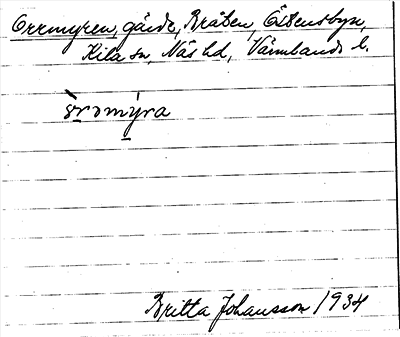 Orrmyren, gårde, Bråten, Östensbyn,
Kila sn, Näs hd, Värmlands l.
òrəmýra
Britta Johansson 1934